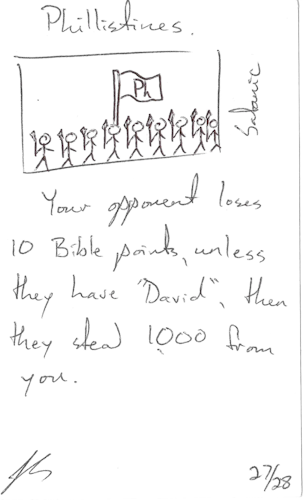 Phillistines.
Ph
Satanic
Your opponent loses
10 Bible points, unless
they have "David", then
they steal 1000 from
you.
27/28